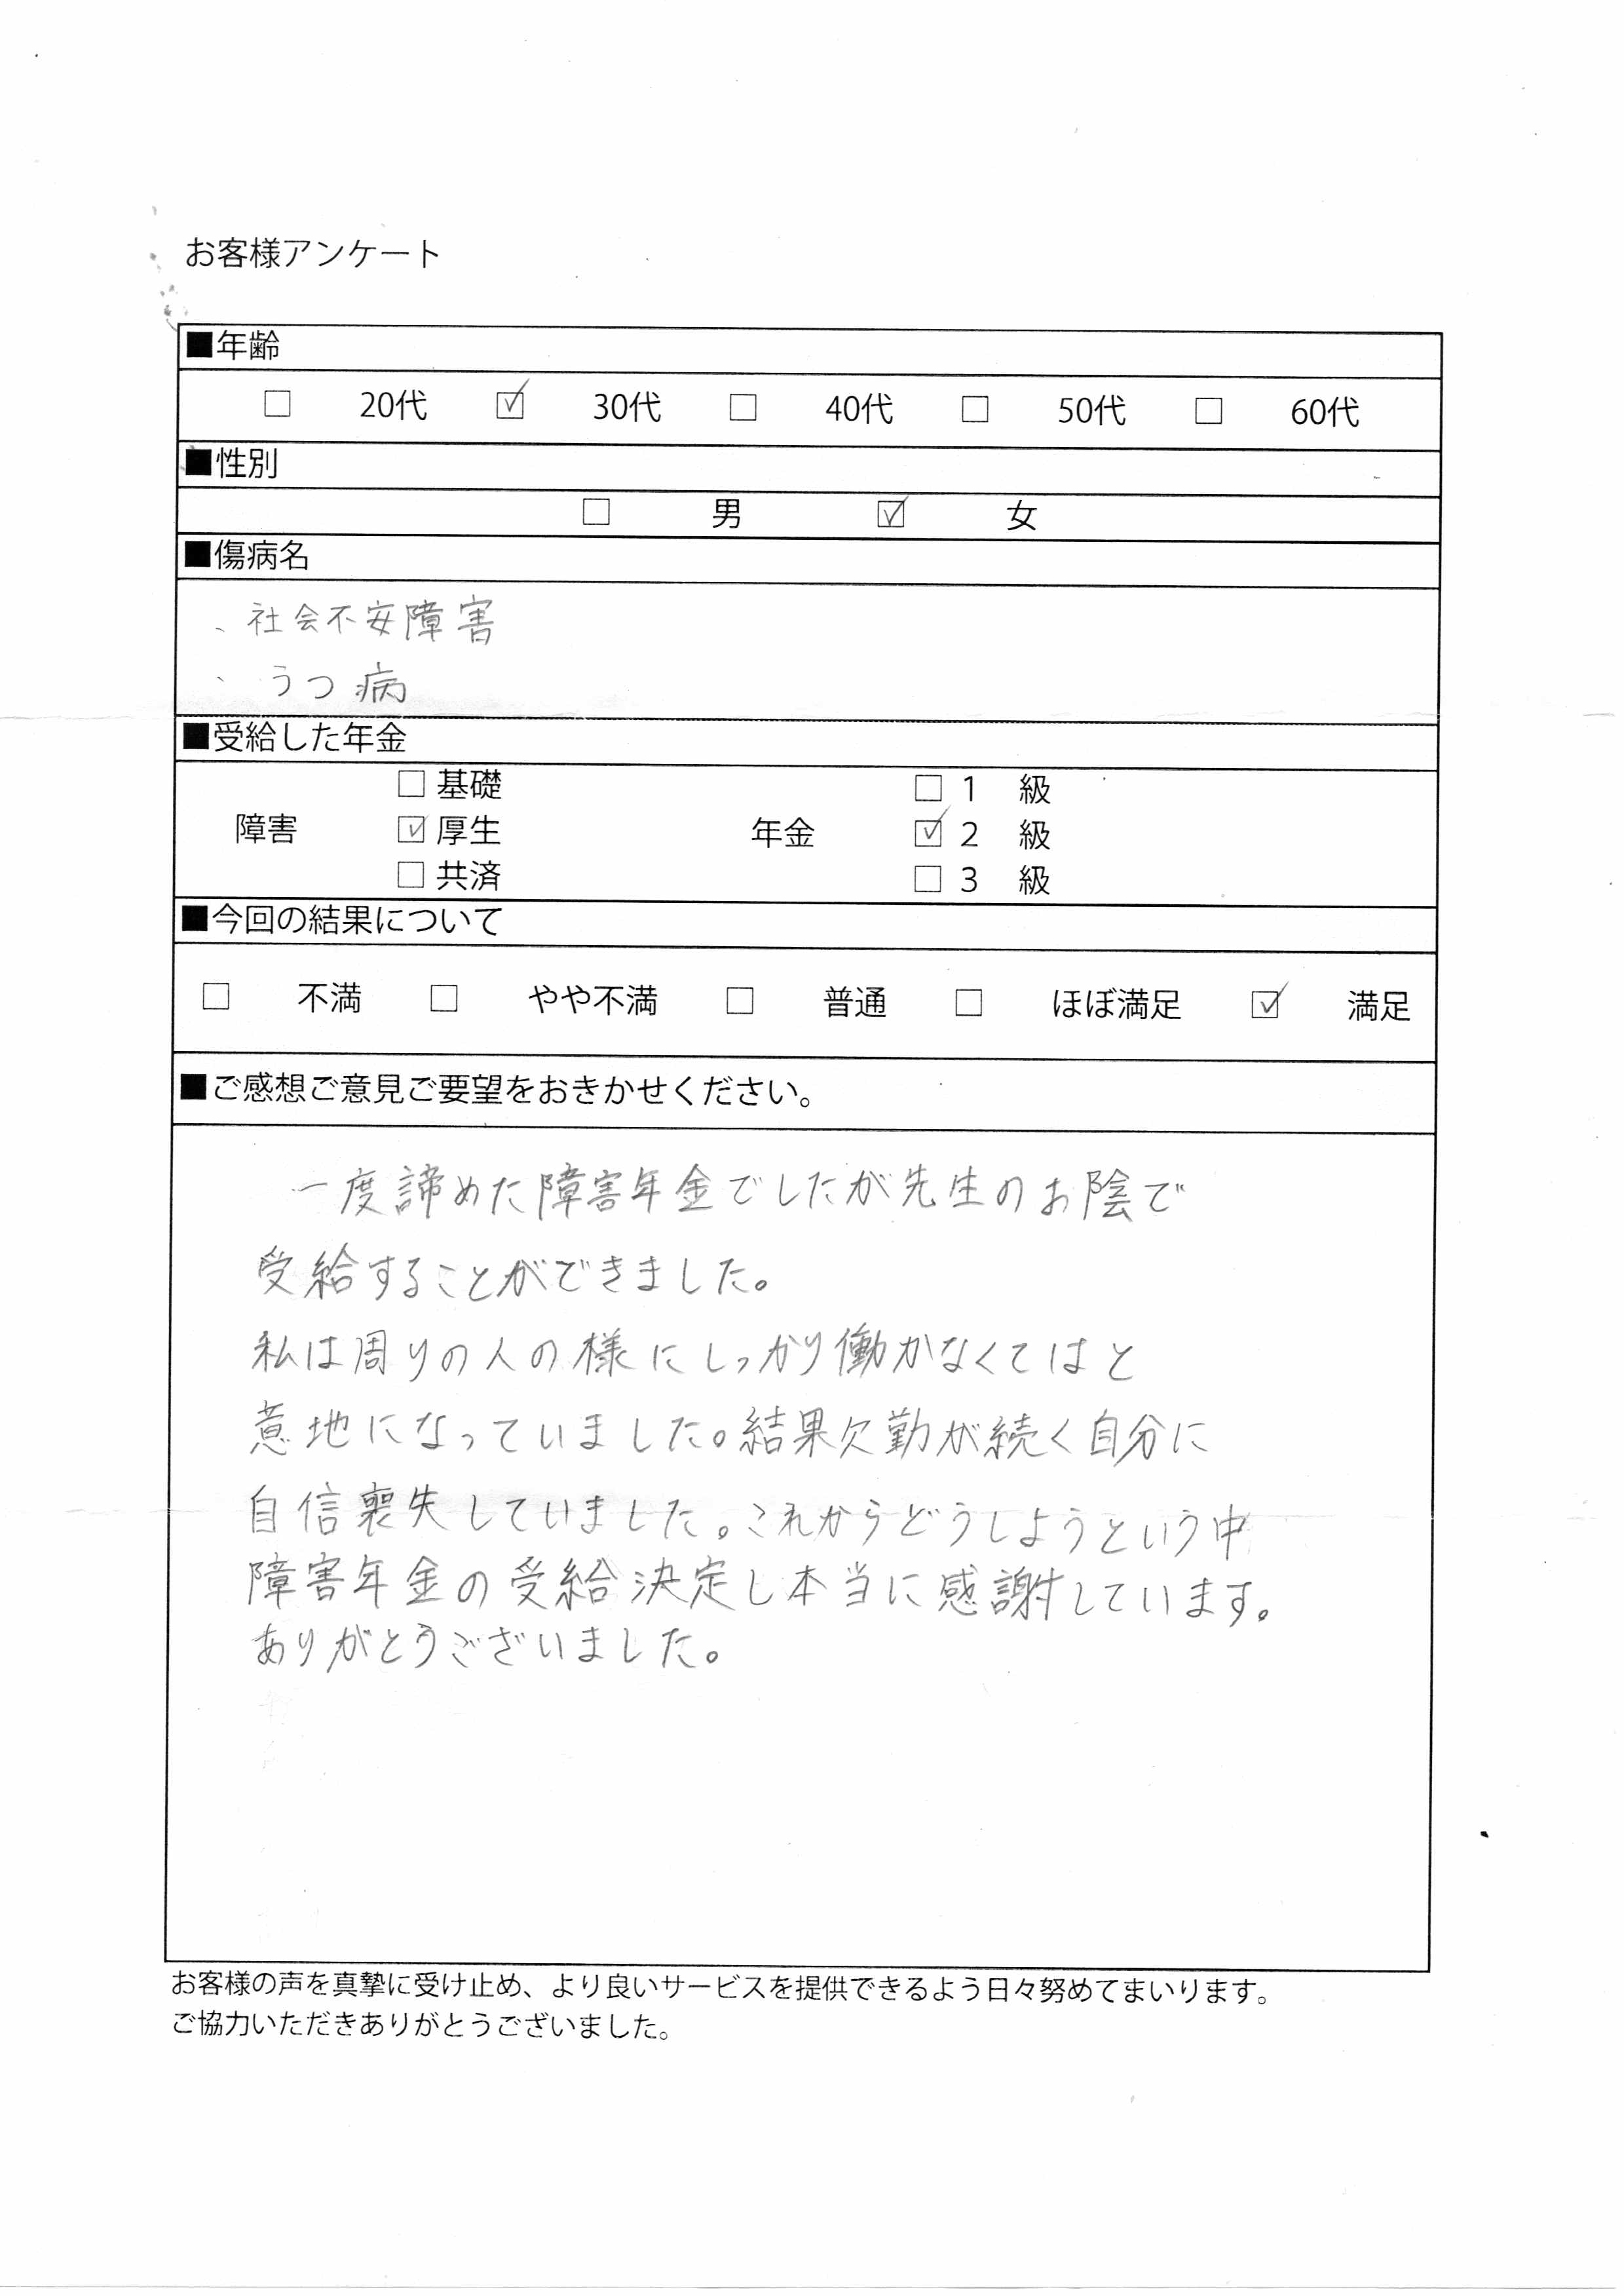 お客様アンケート
■年齢
□ 20代 ☑ 30代 □ 40代 □ 50代 □ 60代
■性別
□ 男 ☑ 女
■傷病名
、社会不安障害
、うつ病
■受給した年金
□ 基礎 □ 1 級
障害 ☑ 厚生 年金 ☑ 2 級
□ 共済 □ 3 級
■今回の結果について
□ 不満 □ やや不満 □ 普通 □ ほぼ満足 ☑ 満足
■ご感想ご意見ご要望をおきかせください。
一度諦めた障害年金でしたが先生のお陰で
受給することができました。
私は周りの人の様にしっかり働かなくてはと
意地になっていました。結果欠勤が続く自分に
自信喪失していました。これからどうしようという中
障害年金の受給決定し本当に感謝しています。
ありがとうございました。
お客様の声を真摯に受け止め、より良いサービスを提供できるよう日々努めてまいります。
ご協力いただきありがとうございました。